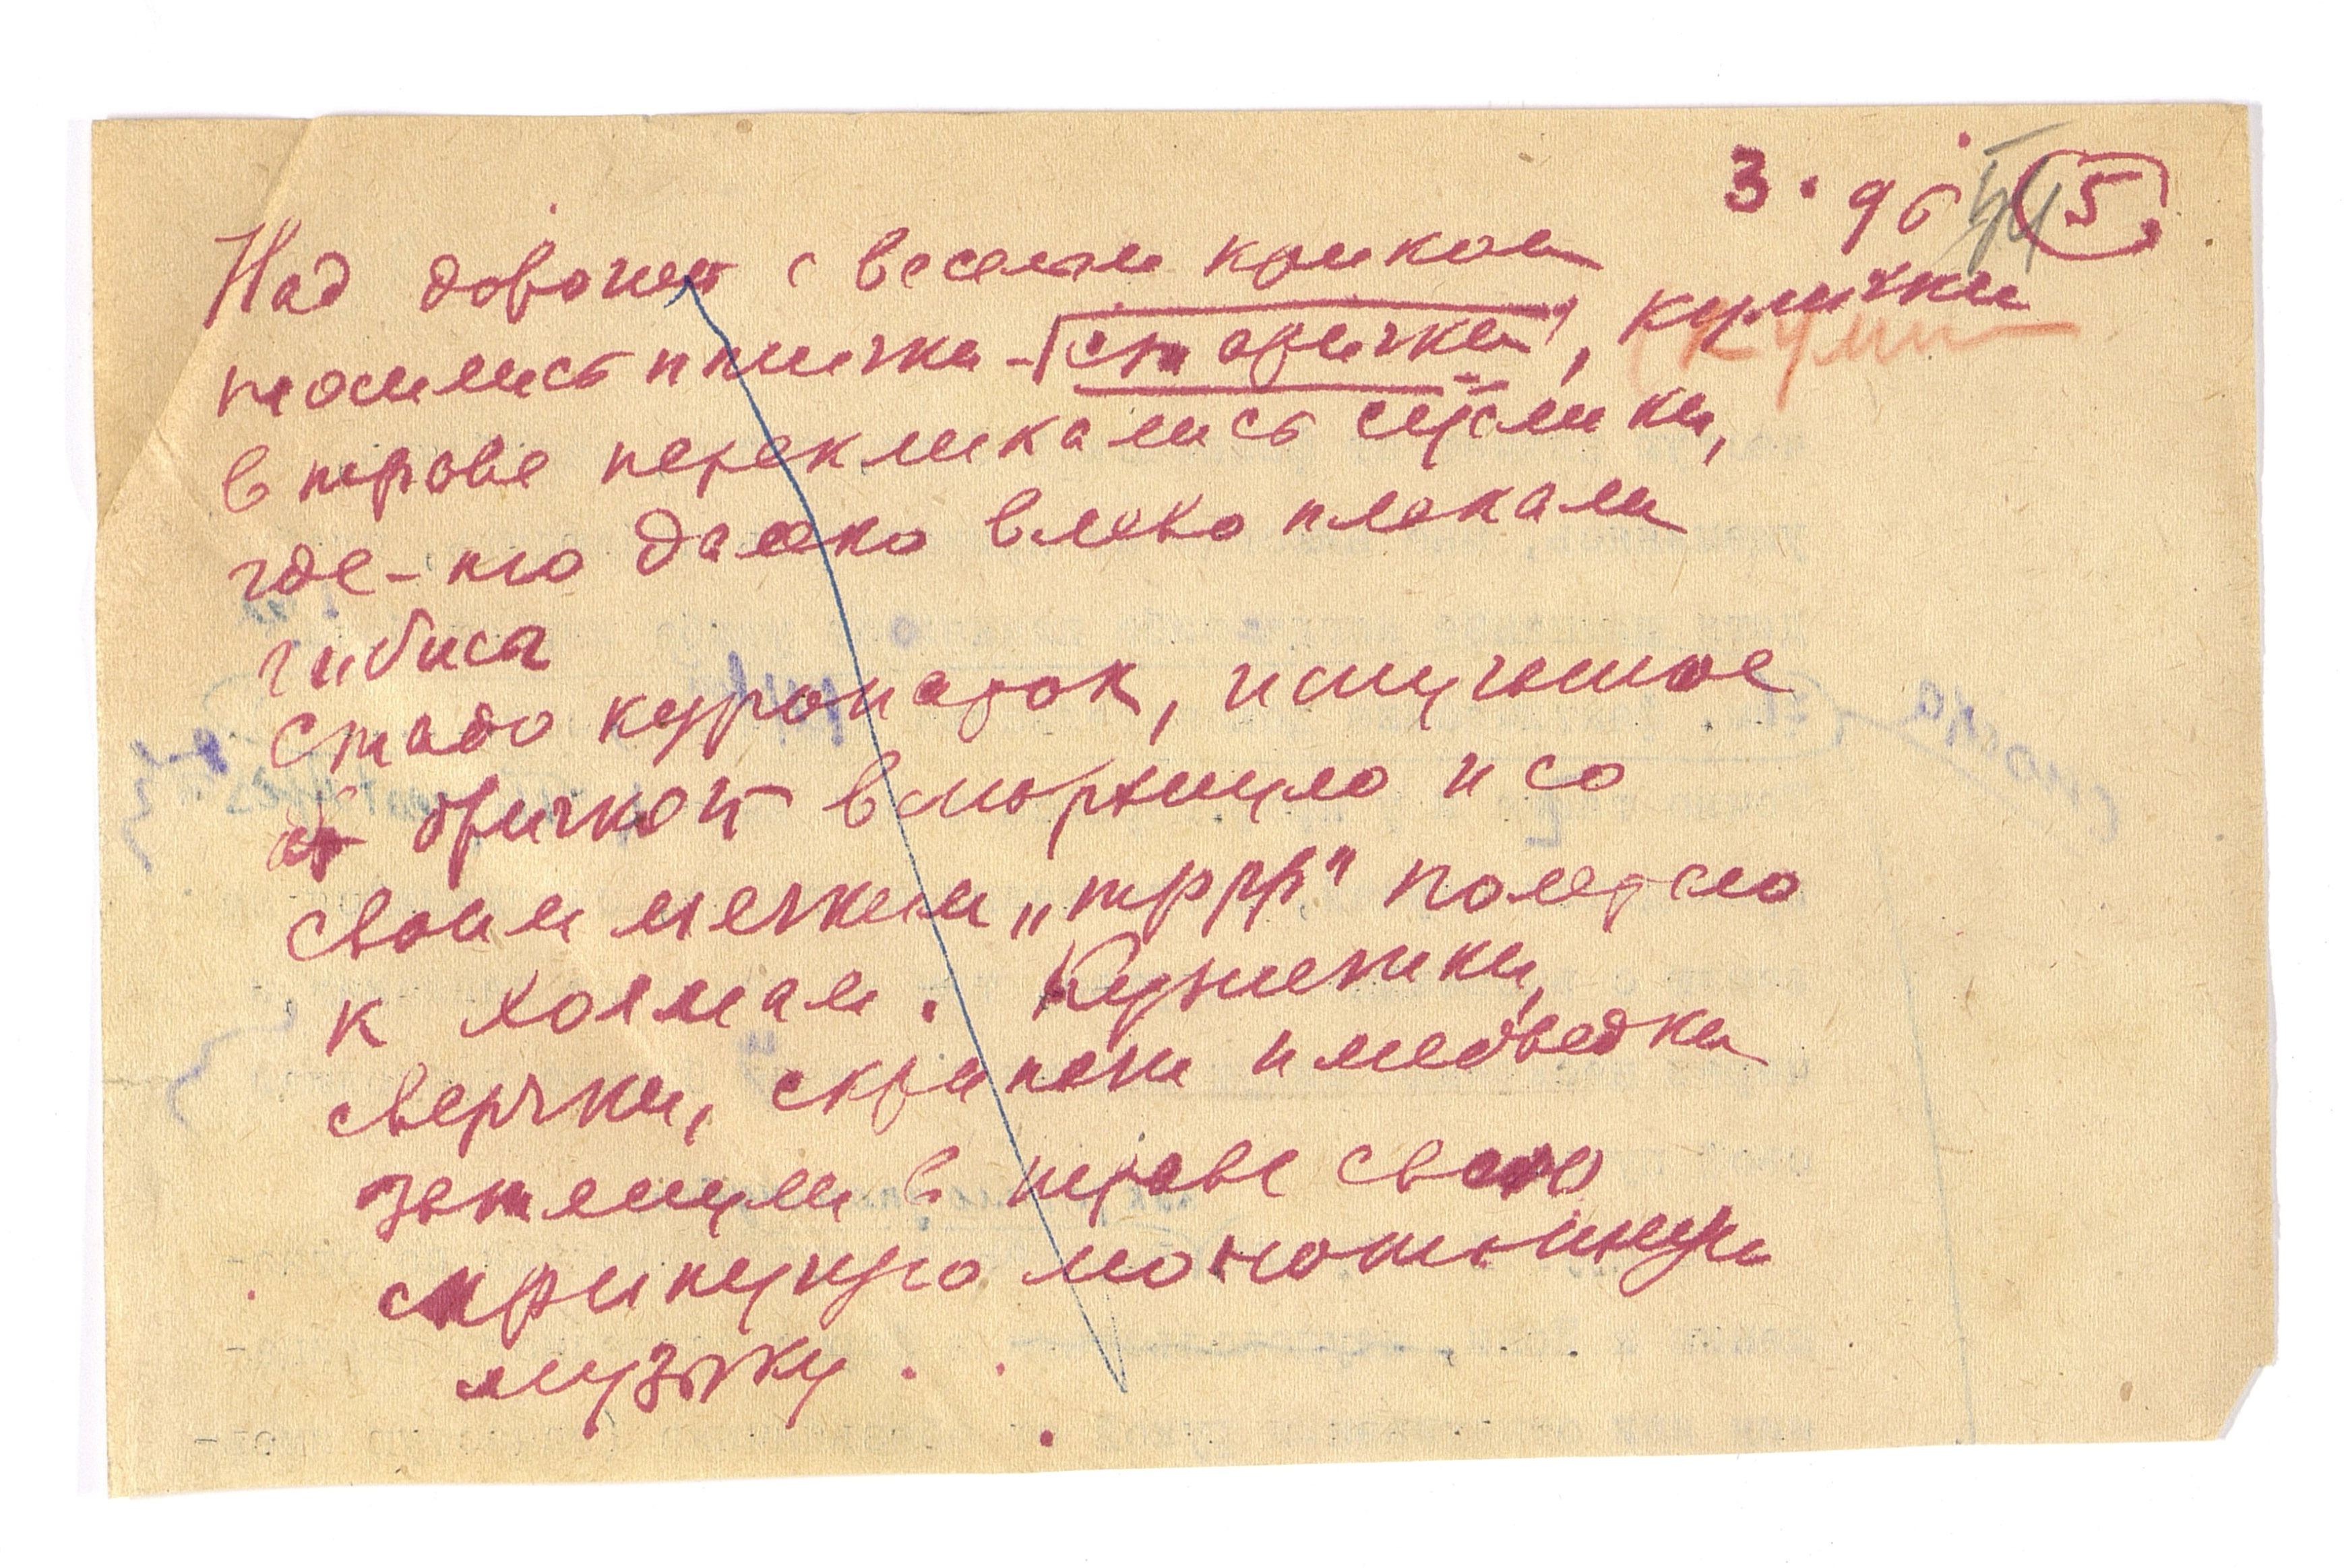 3. 96 (5.
Над дорогой с веселым криком
носились птички - "старички", кулички
(Кули
в траве перекликались суслики,
где-то далеко влево плакали
чибиса
Стадо куропаток, испуганное
бричкой вспорхнуло и со
своим мягким „тррр" полетело
к холмам. Кузнечики,
сверчки, скрипачи и медведки
затянули в траве свою
скрипучую монотонную
музыку.